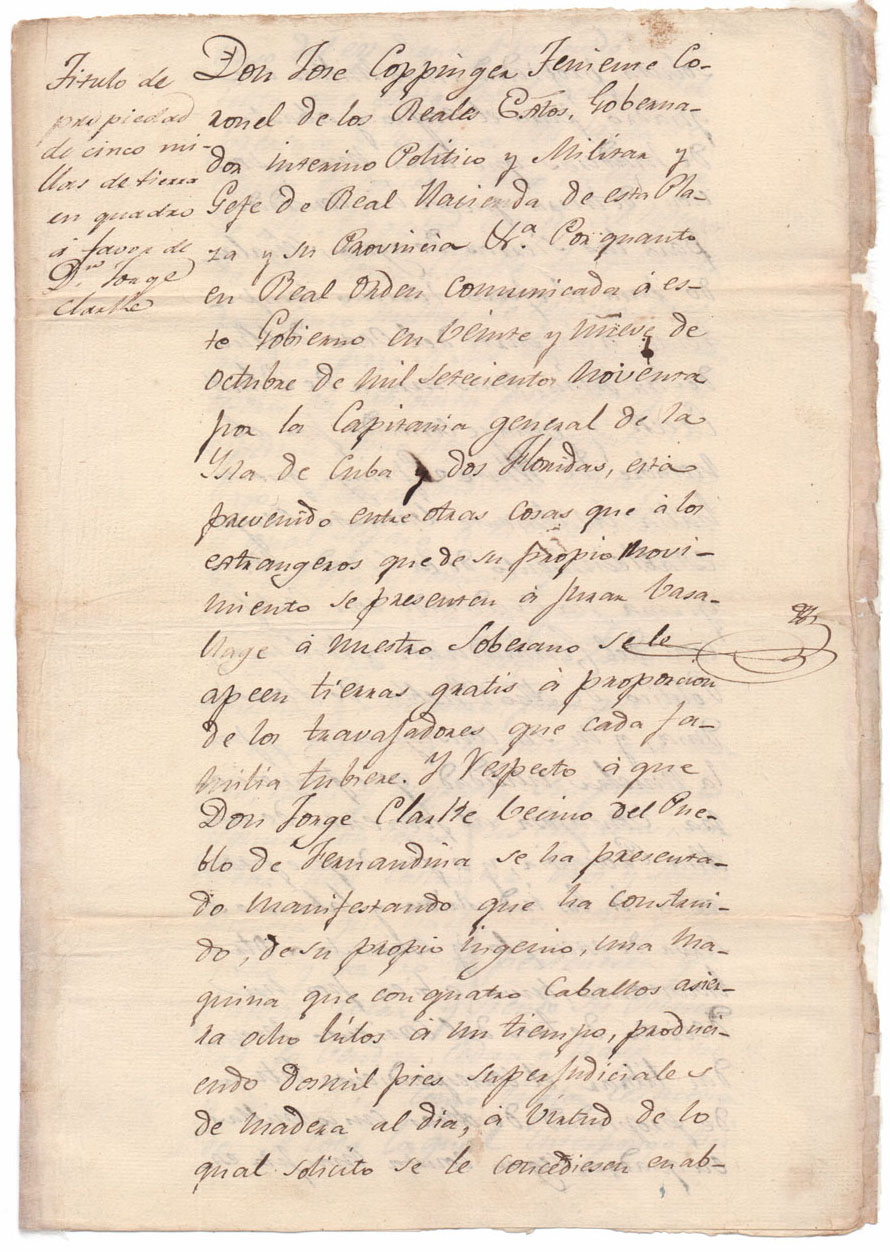 Titulo de
propiedad
de cinco mi-
llas de tierra
en quadro
á favor de
Dn. Jorge
Clarke
Don Jose Coppinger Teniente Co-
ronel de los Reales Extos, Goberna-
dor interino Politico y Militar y
Gefe de Real Hacienda de esta Pla-
za y su Provincia &a. Por quanto
en Real Orden comunicada á es-
te Gobierno en veinte y nueve de
Octubre de mil setecientos noventa
por la Capitania general de la
Ysla de Cuba y dos Floridas, está
prevenido entre otras cosas que á los
estrangeros que de su propio movi-
miento se presenten á jurar basa-
llage á nuestro Soberano se le
apeen tierras gratis á proporcion
de los travajadores que cada fa-
milia tubiere. Y respecto á que
Don Jorge Clarke becino del Pue-
blo de Fernandina se ha presenta-
do manifestando que ha construi-
do, de su propio ingenio, una ma-
quina que con quatro caballos asier-
ra ocho á un tiempo, produci-
endo dosmil pies superfudiciales
de madera al dia, á virtud de lo
qual solicito se le concediesen en ab-